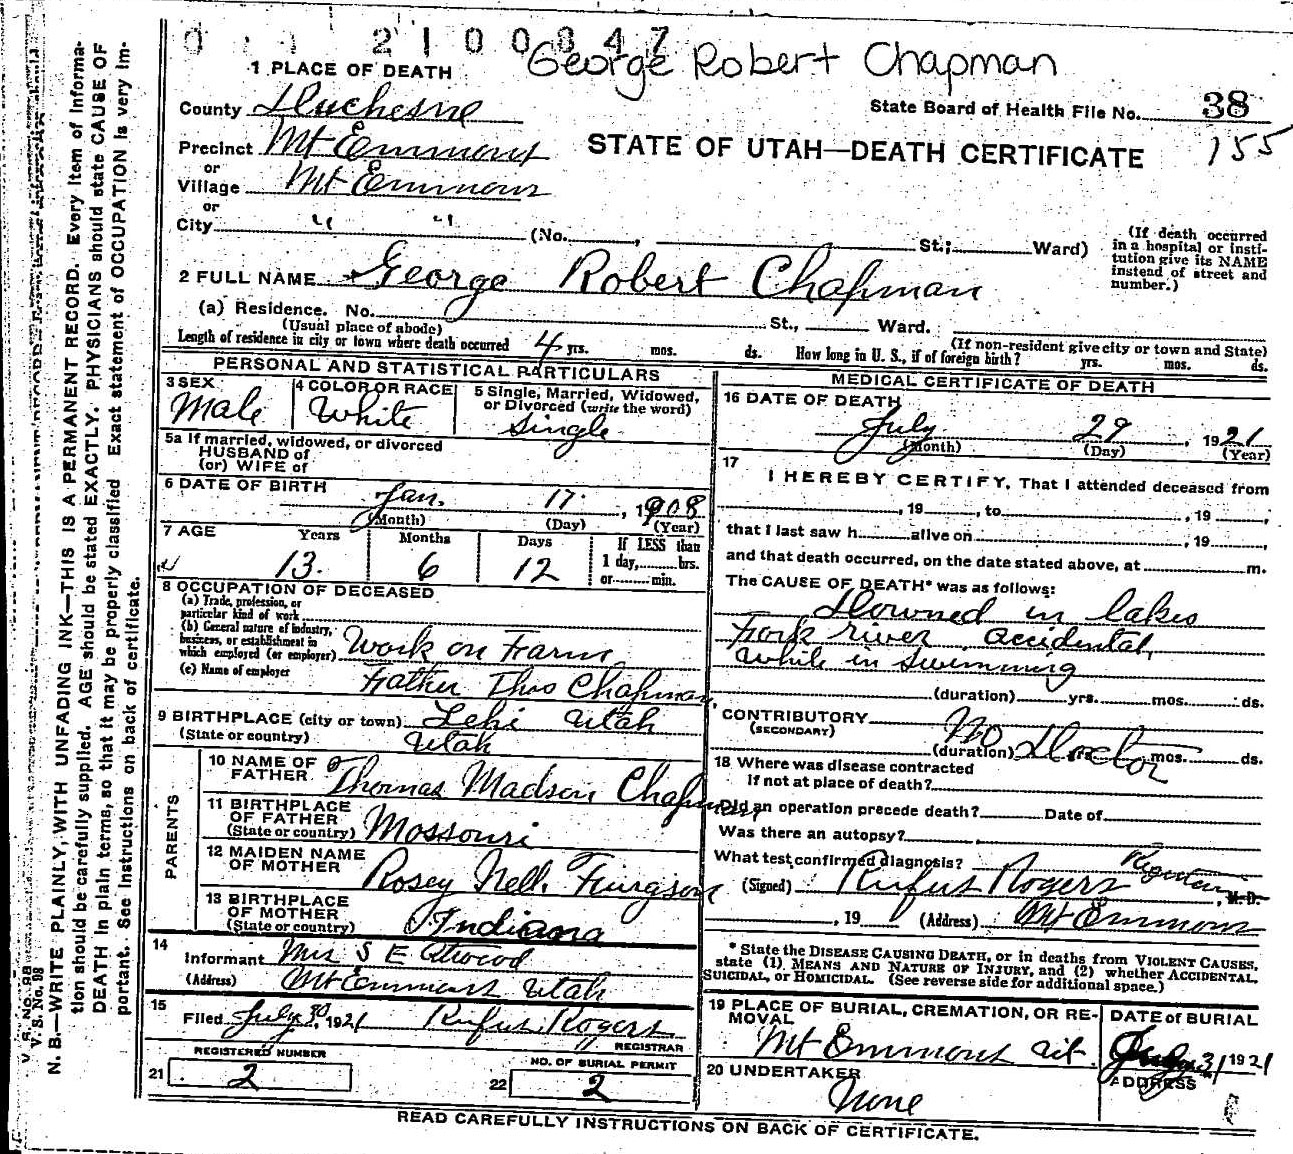 2100847
George Robert Chapman
1 PLACE OF DEATH
State Board of Health File No. 38
155
County Duchesne
STATE OF UTAH—DEATH CERTIFICATE
Precinct Mt Emmons
or
Village Mt Emmons
or
City " "
(No. , St.; Ward)
(If death occurred in a hospital or insti-
tution give its NAME
instead of street and
number.)
2 FULL NAME George Robert Chapman
(a) Residence. No. St., Ward.
(Usual place of abode)
(If non-resident give city or town and State)
Length of residence in city or town where death occurred 4 yrs. mos. ds. How long in U. S., if of foreign birth? yrs. mos. ds.
PERSONAL AND STATISTICAL PARTICULARS
3 SEX
Male
4 COLOR OR RACE
White
5 Single, Married, Widowed,
or Divorced (write the word)
Single
5a If married, widowed, or divorced
HUSBAND of
(or) WIFE of
6 DATE OF BIRTH
Jan. 17. , 1908
(Month) (Day) (Year)
7 AGE Years Months Days
13. 6 12
If LESS than
1 day, hrs.
or min.
8 OCCUPATION OF DECEASED
(a) Trade, profession, or
particular kind of work
(b) General nature of industry,
business, or establishment in
which employed (or employer) Work on Farm
(c) Name of employer Father Thos Chapman
9 BIRTHPLACE (city or town) Lehi Utah
(State or country) Utah
PARENTS
10 NAME OF
FATHER Thomas Madson Chapman
11 BIRTHPLACE
OF FATHER
(State or country) Mossouri
12 MAIDEN NAME
OF MOTHER Rosey Nell.
13 BIRTHPLACE
OF MOTHER
(State or country) Indiana
14
Informant Mrs S E Atwood
(Address) Mt Emmons Utah
15
Filed July 30, 1921 Rufus Rogers
REGISTRAR
REGISTERED NUMBER
21 2
NO. OF BURIAL PERMIT
22 2
MEDICAL CERTIFICATE OF DEATH
16 DATE OF DEATH
July 29, 1921
(Month) (Day) (Year)
17
I HEREBY CERTIFY, That I attended deceased from
, 19 , to , 19 ,
that I last saw h alive on , 19 ,
and that death occurred, on the date stated above, at m.
The CAUSE OF DEATH* was as follows:
Drowned in lakes
Fork river, accidental,
while in swimming
(duration) yrs. mos. ds.
CONTRIBUTORY No Doctor
(SECONDARY)
(duration) yrs. mos. ds.
18 Where was disease contracted
if not at place of death?
Did an operation precede death? Date of
Was there an autopsy?
What test confirmed diagnosis?
(Signed) Rufus Rogers , M. D.
, 19 (Address) Mt Emmons
* State the DISEASE CAUSING DEATH, or in deaths from VIOLENT CAUSES,
state (1) MEANS AND NATURE OF INJURY, and (2) whether ACCIDENTAL,
SUICIDAL, or HOMICIDAL. (See reverse side for additional space.)
19 PLACE OF BURIAL, CREMATION, OR RE-
MOVAL
Mt Emmons
DATE of BURIAL
July 31 1921
20 UNDERTAKER
None
ADDRESS
READ CAREFULLY INSTRUCTIONS ON BACK OF CERTIFICATE.
V. S. No. 98
N. B.—WRITE PLAINLY, WITH UNFADING INK—THIS IS A PERMANENT RECORD. Every item of informa-
tion should be carefully supplied. AGE should be stated EXACTLY. PHYSICIANS should state CAUSE OF
DEATH in plain terms, so that it may be properly classified. Exact statement of OCCUPATION is very im-
portant. See instructions on back of certificate.